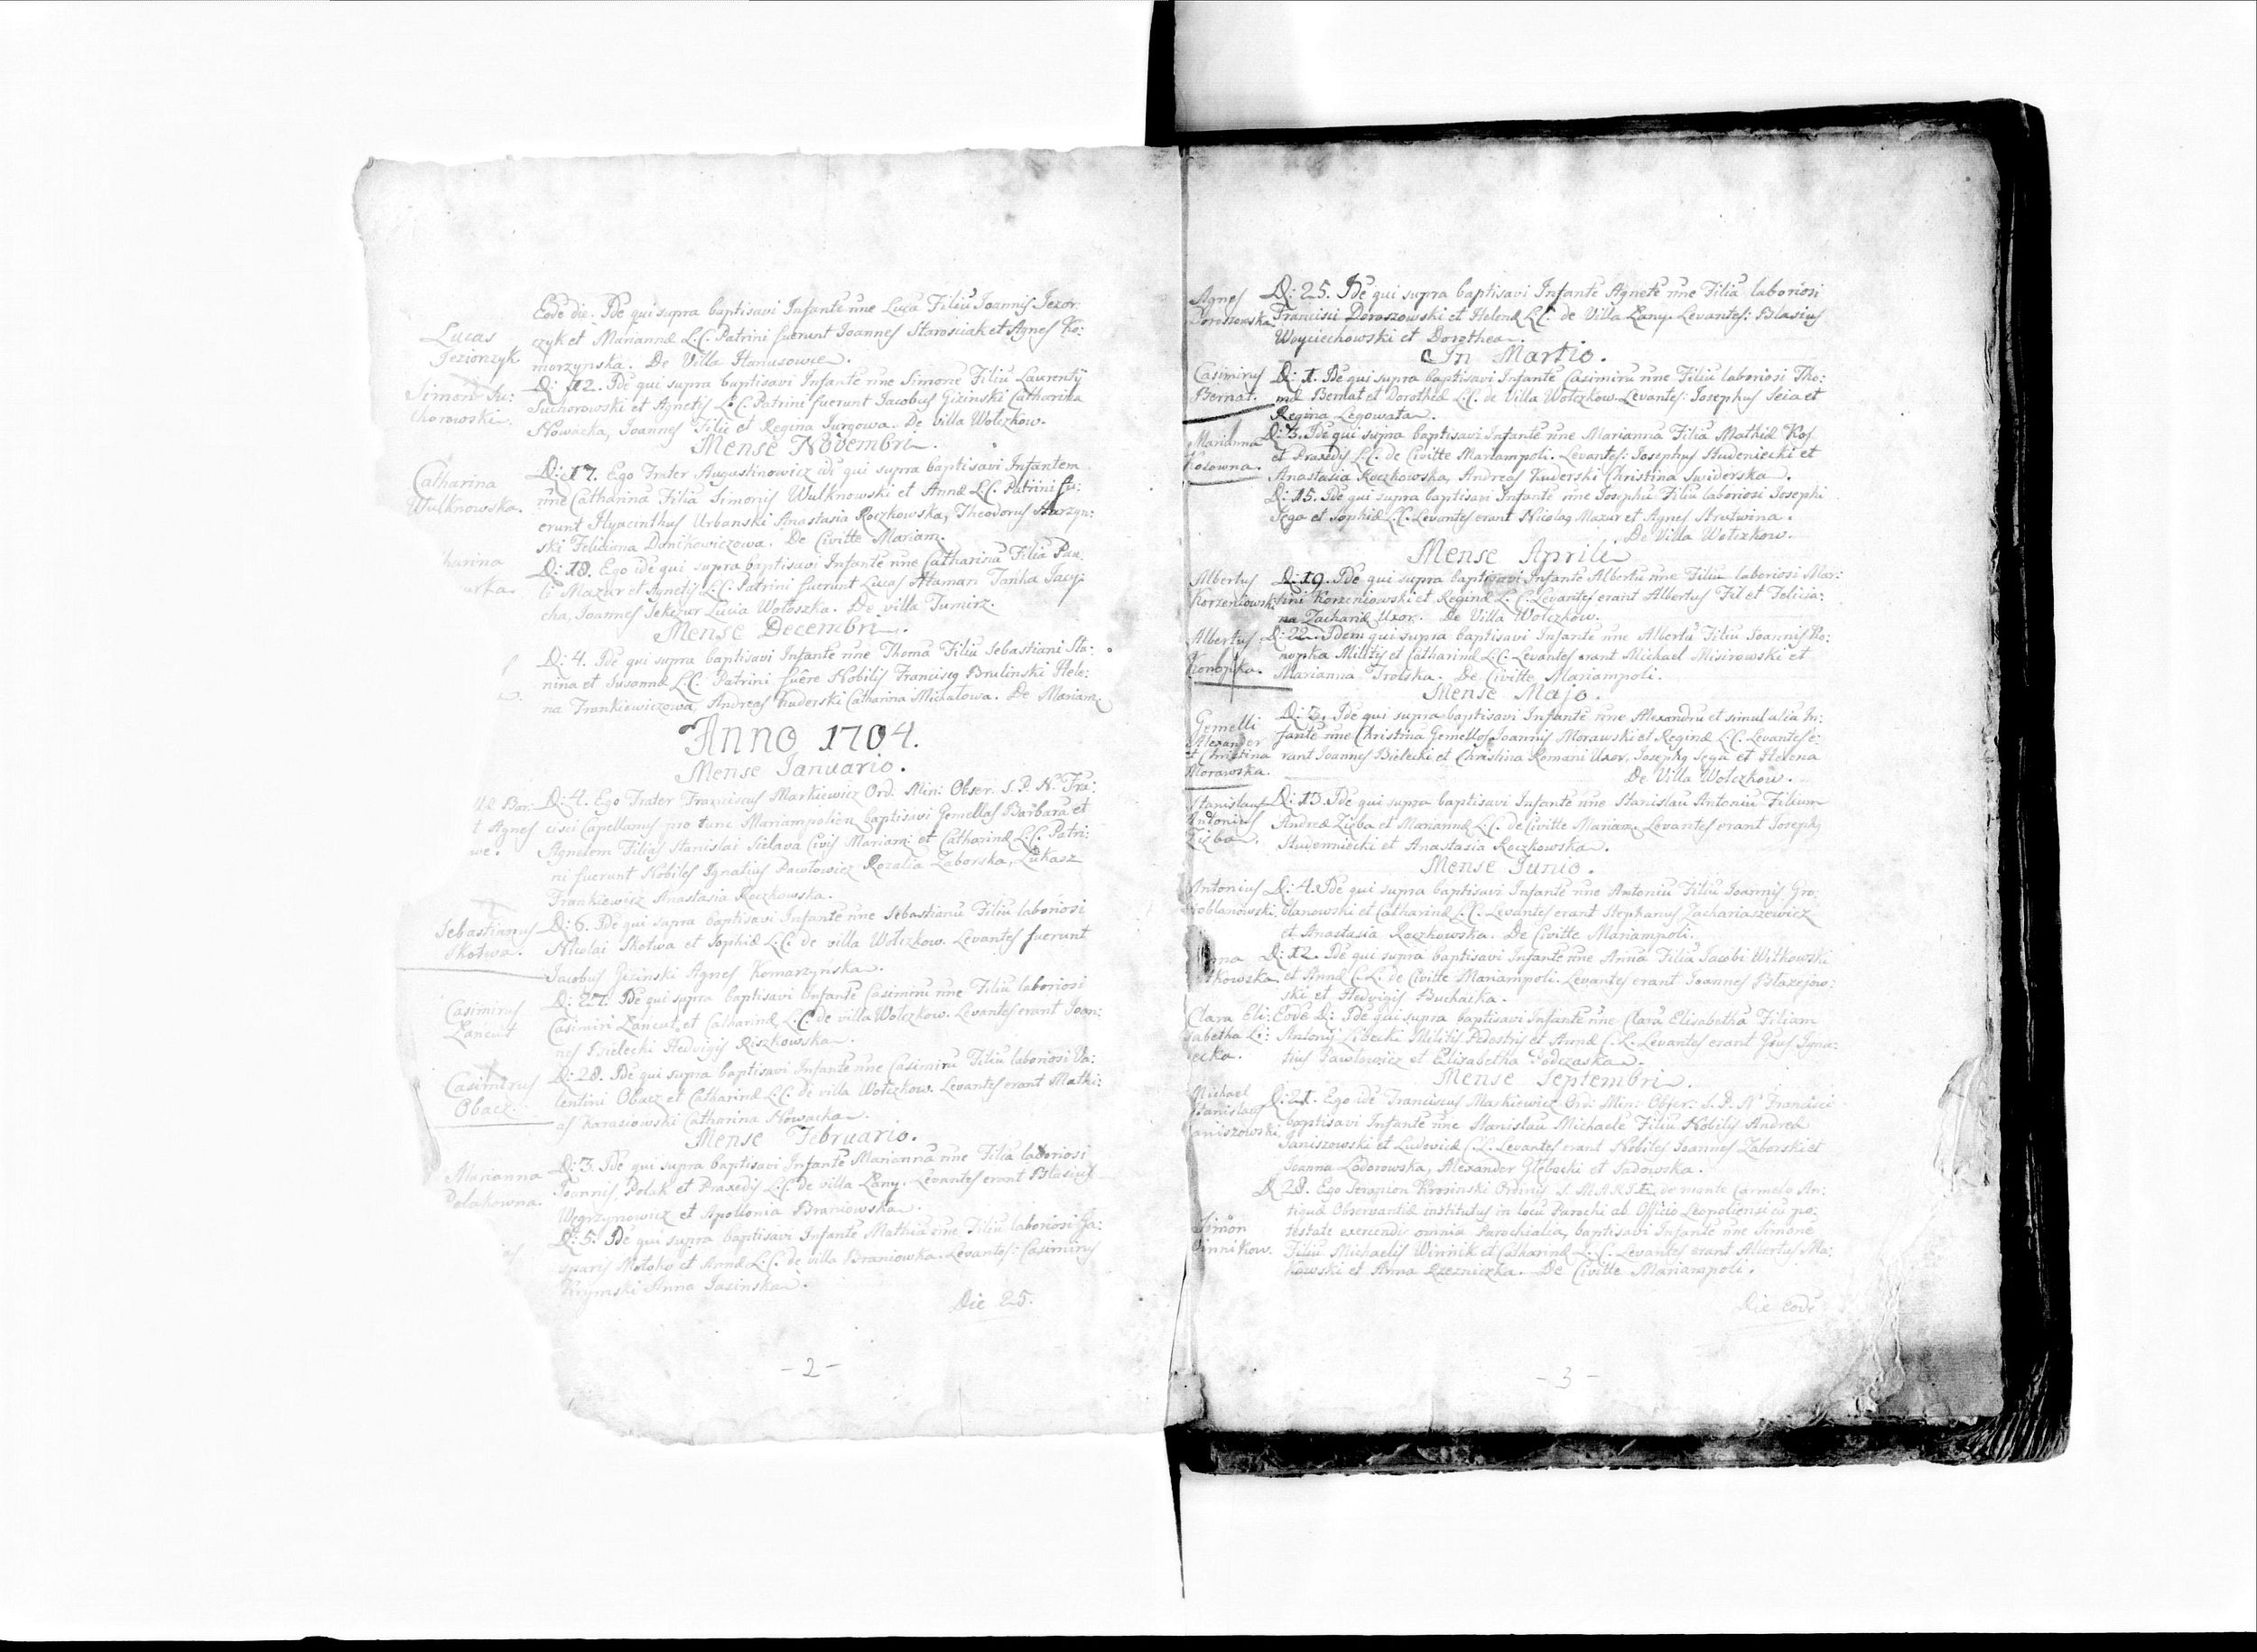 Eodē die. Idē qui supra baptisavi Infantē nn̄e Lucā Filiū Joannis Jezor
Lucas
Jeziorczyk
czyk et Mariannæ L.C. Patrini fuerunt Joannes Starosciak et Agnes Ko:
morzynska. De Villa Hanusowce.
Simon Su:
chorowski.
D: 12. Idē qui supra baptisavi Infantē nn̄e Simonē Filiū Laurentÿ
Suchorowski et Agnetis L.C. Patrini fuerunt Jacobus Gizinski Catharina
Nowacka, Joannes Filic et Regina Jurgowa. De villa Wolczkow.
Mense Novembri.
Catharina
Wulknowska.
D: 17. Ego Frater Augustinowicz idē qui supra baptisavi Infantem
nn̄e Catharinā Filiā Simonis Wulknowski et Annæ L.C. Patrini fu:
erunt Hyacinthus Urbanski Anastasia Roczkowska, Theodorus Starzyn:
ski Feliciana Danikowiczowa. De Civitte Mariam.
harina
urka.
D: 18. Ego idē qui supra baptisavi Infantē nn̄e Catharinā Filiā Pau
li Mazur et Agnetis L.C. Patrini fuerunt Lucas Haman Tańka Jacy:
cha, Joannes Sekezur Lucia Wołoszka. De villa Tumirz.
Mense Decembri.
D: 4. Idē qui supra baptisavi Infantē nn̄e Thomā Filiū Sebastiani Sta:
nina et Susannæ L.C. Patrini fuêre Nobilis Franciscq Brulinski Hele:
na Frankiewiczowa, Andreas Kuderski Catharina Michałowa. De Mariam.
Anno 1704.
Mense Januario.
Bar:
t Agnes
we.
D: 4. Ego Frater Franciscus Markiewicz Ord. Min: Obser: S. P. N. Frā:
cisci Capellanus pro tunc Mariampolien baptisavi Gemellas Barbarā et
Agnetem Filias Stanislai Sielava Civis Mariam: et Catharinæ L.C. Patri:
ni fuerunt Nobiles Ignatius Pawłowicz Rozalia Zaborska, Łukasz
Frankiewicz Anastasia Roczkowska.
Sebastianus
Skotwa.
D: 6. Idē qui supra baptisavi Infantē nn̄e Sebastianū Filiū laboriosi
Nicolai Skotwa et Sophiæ L.C. de villa Wołczkow. Levantes fuerunt
Jacobus Gizinski Agnes Komarzyńska.
Casimirus
Łańcut
D: 27. Idē qui supra baptisavi Infantē Casimirū nn̄e Filiū laboriosi
Casimiri Łańcut, et Catharinæ L.C. de villa Wołczkow. Levantes erant Joan:
nes Bielecki Hedvigis Riszkowska.
Casimirus
Obacz.
D: 28. Idē qui supra baptisavi Infantē nn̄e Casimirū Filiū laboriosi Va:
lentini Obacz et Catharinæ L.C. de villa Wołczkow. Levantes erant Mathi:
as Karasiowski Catharina Nowacka.
Mense Februario.
Marianna
Polakowna.
D: 3. Idē qui supra baptisavi Infantē Mariannā nn̄e Filiā laboriosi
Joannis, Polak et Praxedis L.C. de villa Łany. Levantes erant Blasius
Węgrzynowicz et Apollonia Braniowska.
D: 5. Idē qui supra baptisavi Infantē Mathiā nn̄e Filiū laboriosi Ga:
sparis Motoho et Annæ L.C. de villa Braniowka. Levantes: Casimirus
Krymski Anna Jasinska.
Die 25.
- 2 -
Agnes
Doroszowska.
D: 25. Idē qui supra baptisavi Infantē Agnetē nn̄e Filiā laboriosi
Francisci Doroszowski et Helenæ L.C. de Villa Łany. Levantes: Blasius
Woyciechowski et Dorothea.
In Martio.
Casimirus
Bernat.
D: 1. Idē qui supra baptisavi Infantē Casimirū nn̄e Filiū laboriosi Tho:
mæ Bernat et Dorotheæ L.C. de Villa Wołczkow. Levantes: Josephus Seia et
Regina Legowata.
Marianna
Kosowna.
D: 3. Idē qui supra baptisavi Infantē nn̄e Mariannā Filiā Mathiæ Kos
et Praxedis L.C. de Civitte Mariampoli. Levantes: Josephus Studeniecki et
Anastasia Roczkowska, Andreas Kuderski Christina Swiderska.
D: 15. Idē qui supra baptisavi Infantē nn̄e Josephū Filiū laboriosi Josephi
Sega et Sophiæ L.C. Levantes erant Nicolaq Mazur et Agnes Strutwina.
De Villa Wołczkow.
Mense Aprili
Albertus
Korzeniowski
D: 19. Idē qui supra baptisavi Infantē Albertū nn̄e Filiū laboriosi Mar:
tini Korzeniowski et Reginæ L.C. Levantes erant Albertus Fil et Felicia:
na Zachariæ Uxor. De Villa Wołczkow.
Albertus
Konopka.
D: 22. Idem qui supra baptisavi Infantē nn̄e Albertū Filiū Joannis Ko:
nopka Militis et Catharinæ L.C. Levantes erant Michael Misirowski et
Marianna Trolska. De Civitte Mariampoli.
Mense Majo.
Gemelli
Alexander
et Christina
Morawska.
D: 3. Idē qui supra baptisavi Infantē nn̄e Alexandrū et simul aliā In:
fantē nn̄e Christinā Gemellos Joannis Morawski et Reginæ L.C. Levantes e:
rant Joannes Bielecki et Christina Romani Uxor, Josephq Sega et Helena
De Villa Wołczkow.
Stanislaus
Antonius
Zięba.
D: 13. Idē qui supra baptisavi Infantē nn̄e Stanislaū Antoniū Filium
Andreæ Zięba et Mariannæ L.C. de Civitte Mariam. Levantes erant Josephq
Studenniecki et Anastasia Roczkowska.
Mense Junio.
Antonius
Groblanowski.
D: 4. Idē qui supra baptisavi Infantē nn̄e Antoniū Filiū Joannis Gro:
blanowski et Catharinæ L.C. Levantes erant Stephanus Zachariaszewicz
et Anastasia Roczkowska. De Civitte Mariampoli.
nna
tkowska
D: 12. Idē qui supra baptisavi Infantē nn̄e Annā Filiā Jacobi Witkowski
et Annæ C.L. de Civitte Mariampoli. Levantes erant Joannes Błazejow:
ski et Hedvigis Buchacka.
Clara Eli:
sabetha Li:
secka.
Eodē D: Idē qui supra baptisavi Infantē nn̄e Clarā Elisabethā Filiam
Antonij Lisecki Militis Pedestris et Annæ C.L. Levantes erant Gsus Igna:
tius Pawlowicz et Elisabetha Podczaska.
Mense Septembri.
Michael
Stanislaus
Janiszowski
D: 21. Ego idē Franciscus Markiewicz Ord: Min: Obser: S. P. N. Francisci
baptisavi Infantē nn̄e Stanislaū Michaelē Filiū Nobilis Andreæ
Janiszowski et Ludovicæ C.L. Levantes erant Nobiles Joannes Zaborski et
Joanna Lodorowska, Alexander Głębocki et Sadowska.
Simon
Winnikow.
D 28. Ego Serapion Krosinski Ordinis S. MARIÆ de monte Carmelo An:
tiquæ Observantiæ institutus in locū Parochi ab Officio Leopoliensi cū po:
testate exercendi omnia Parochialia, baptisavi Infantē nn̄e Simonē
Filiū Michaelis Winnik et Catharinæ L.C. Levantes erant Albertus Ma:
kowski et Anna Rzezniczka. De Civitte Mariampoli.
Die Eodē
- 3 -